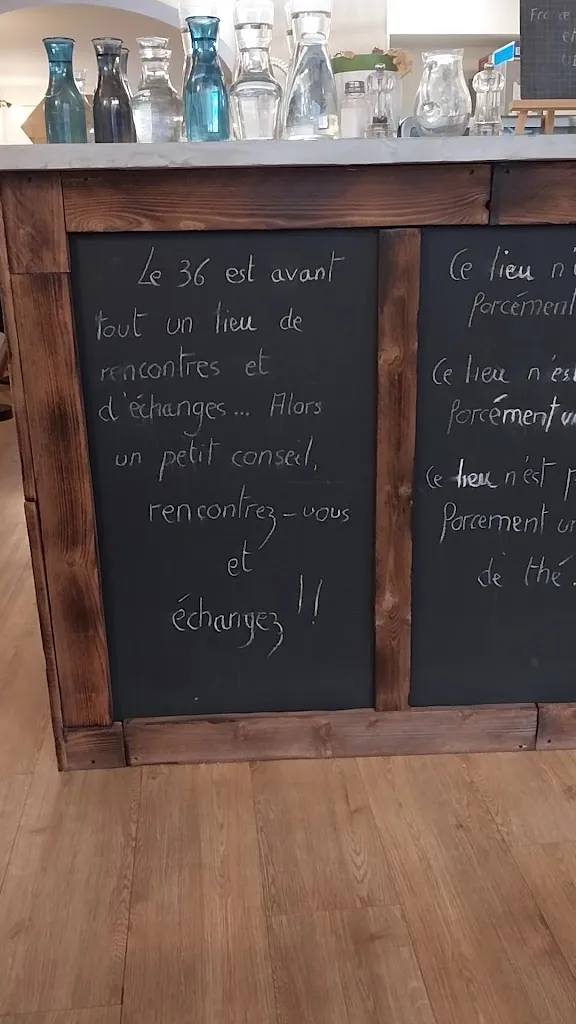 Le 36 est avant
tout un lieu de
rencontres et
d'échanges... Alors
un petit conseil,
rencontrez-vous
et
échangez !!
Ce lieu n'
forcément
Ce lieu n'est
forcément un
Ce lieu n'est p
forcement un
de thé.